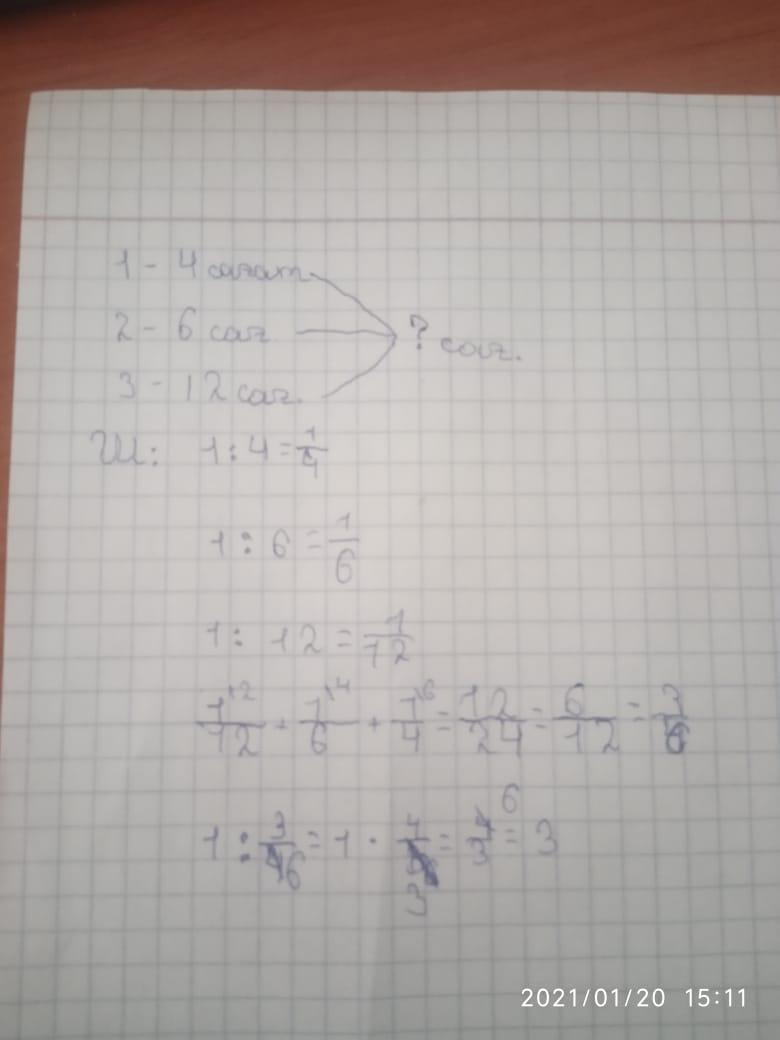 1 - 4 сағат
2 - 6 сағ
3 - 12 сағ.
? сағ.
Ш: 1 : 4 = 1/4
1 : 6 = 1/6
1 : 12 = 1/12
1\2/12 + 1\4/6 + 1\6/4 = 12/24 = 6/12 = 3/6
1 : 3/6 = 1 · = = 3
2021/01/20 15:11